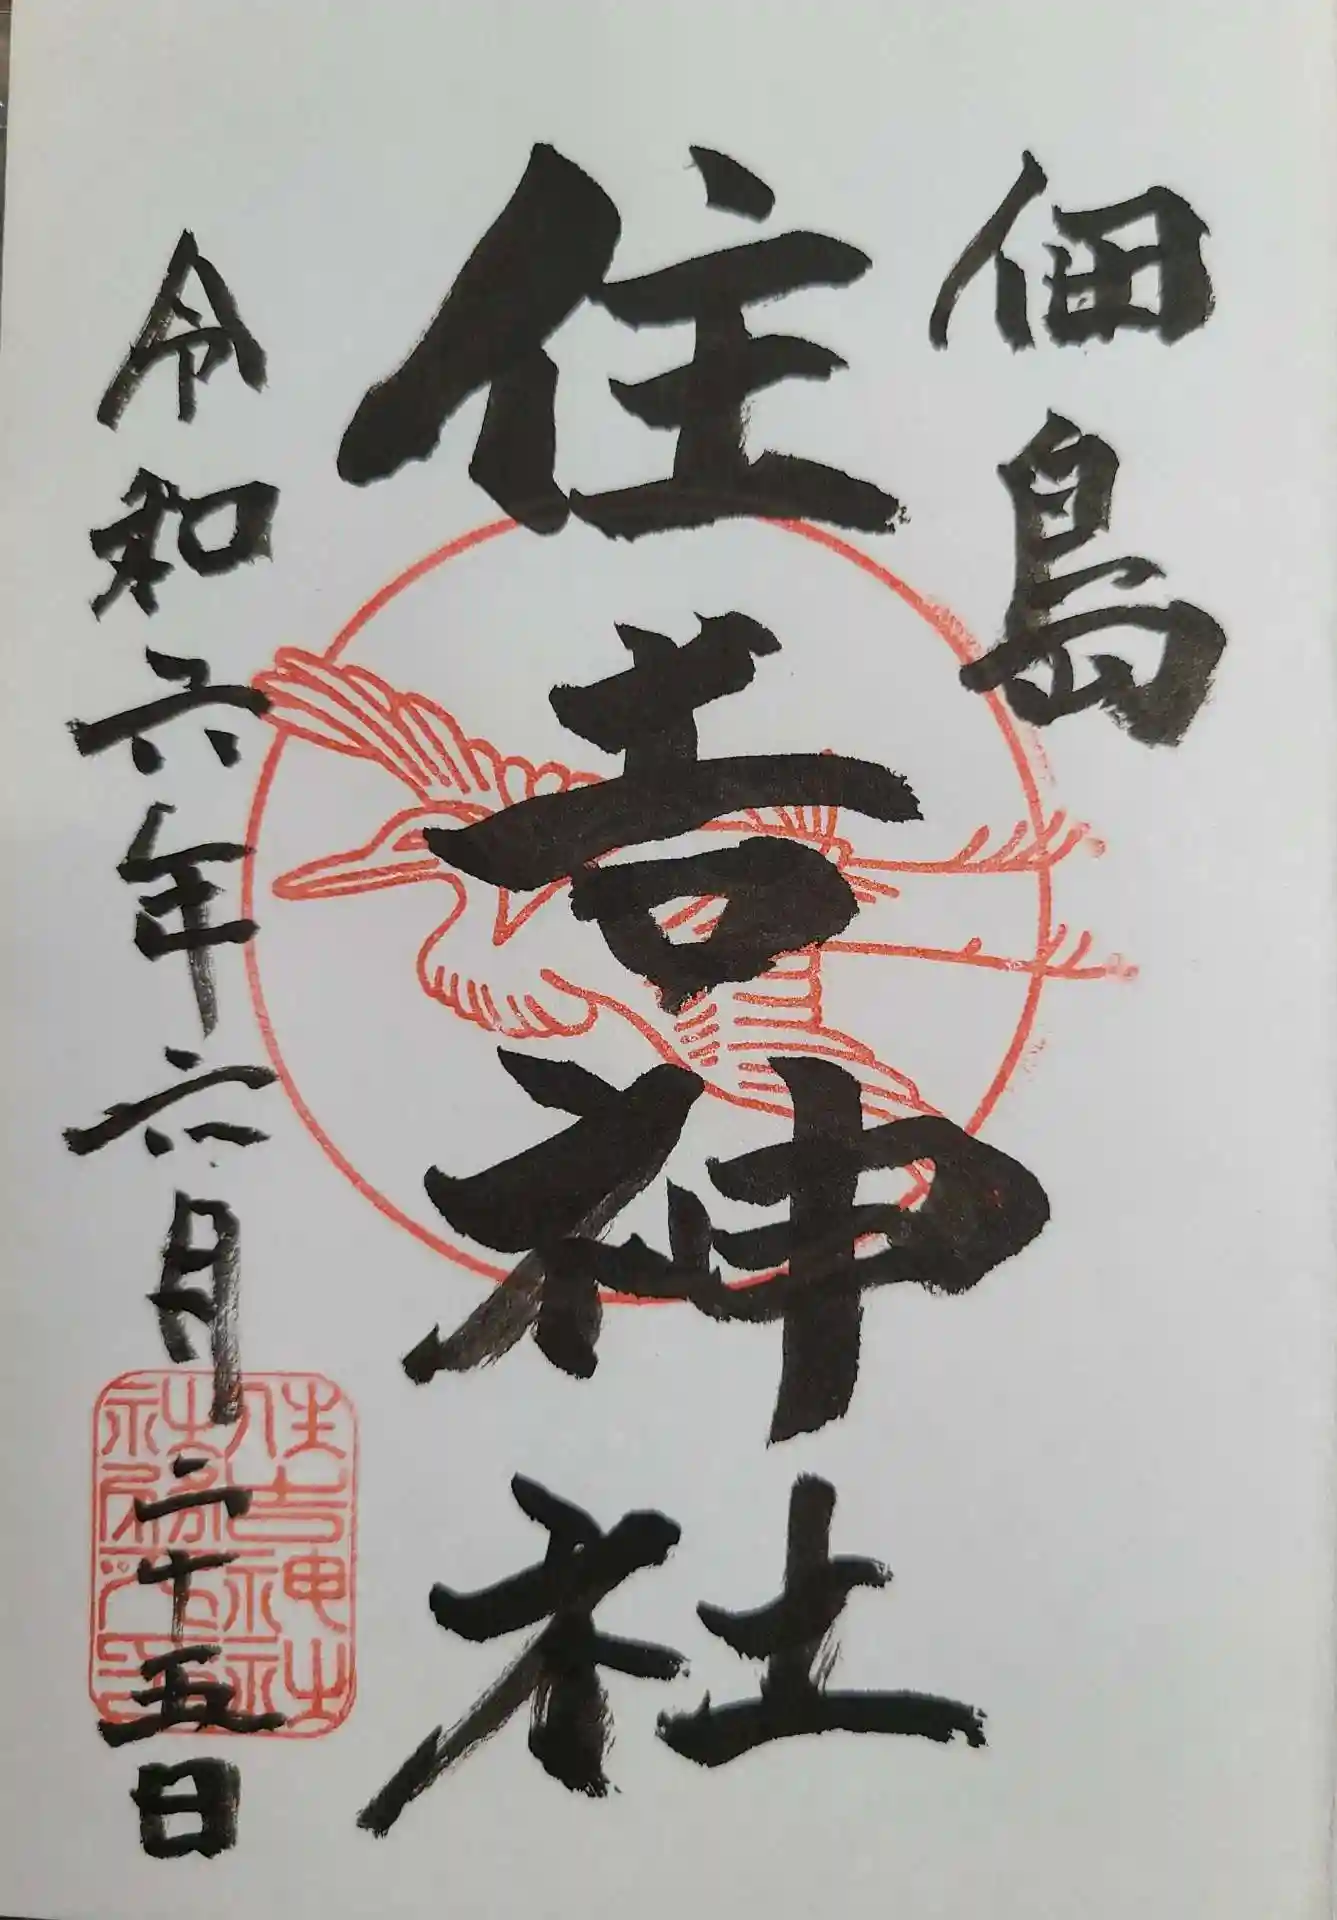 佃島
住吉神社
令和六年六月二十五日
住吉神社
社務所印